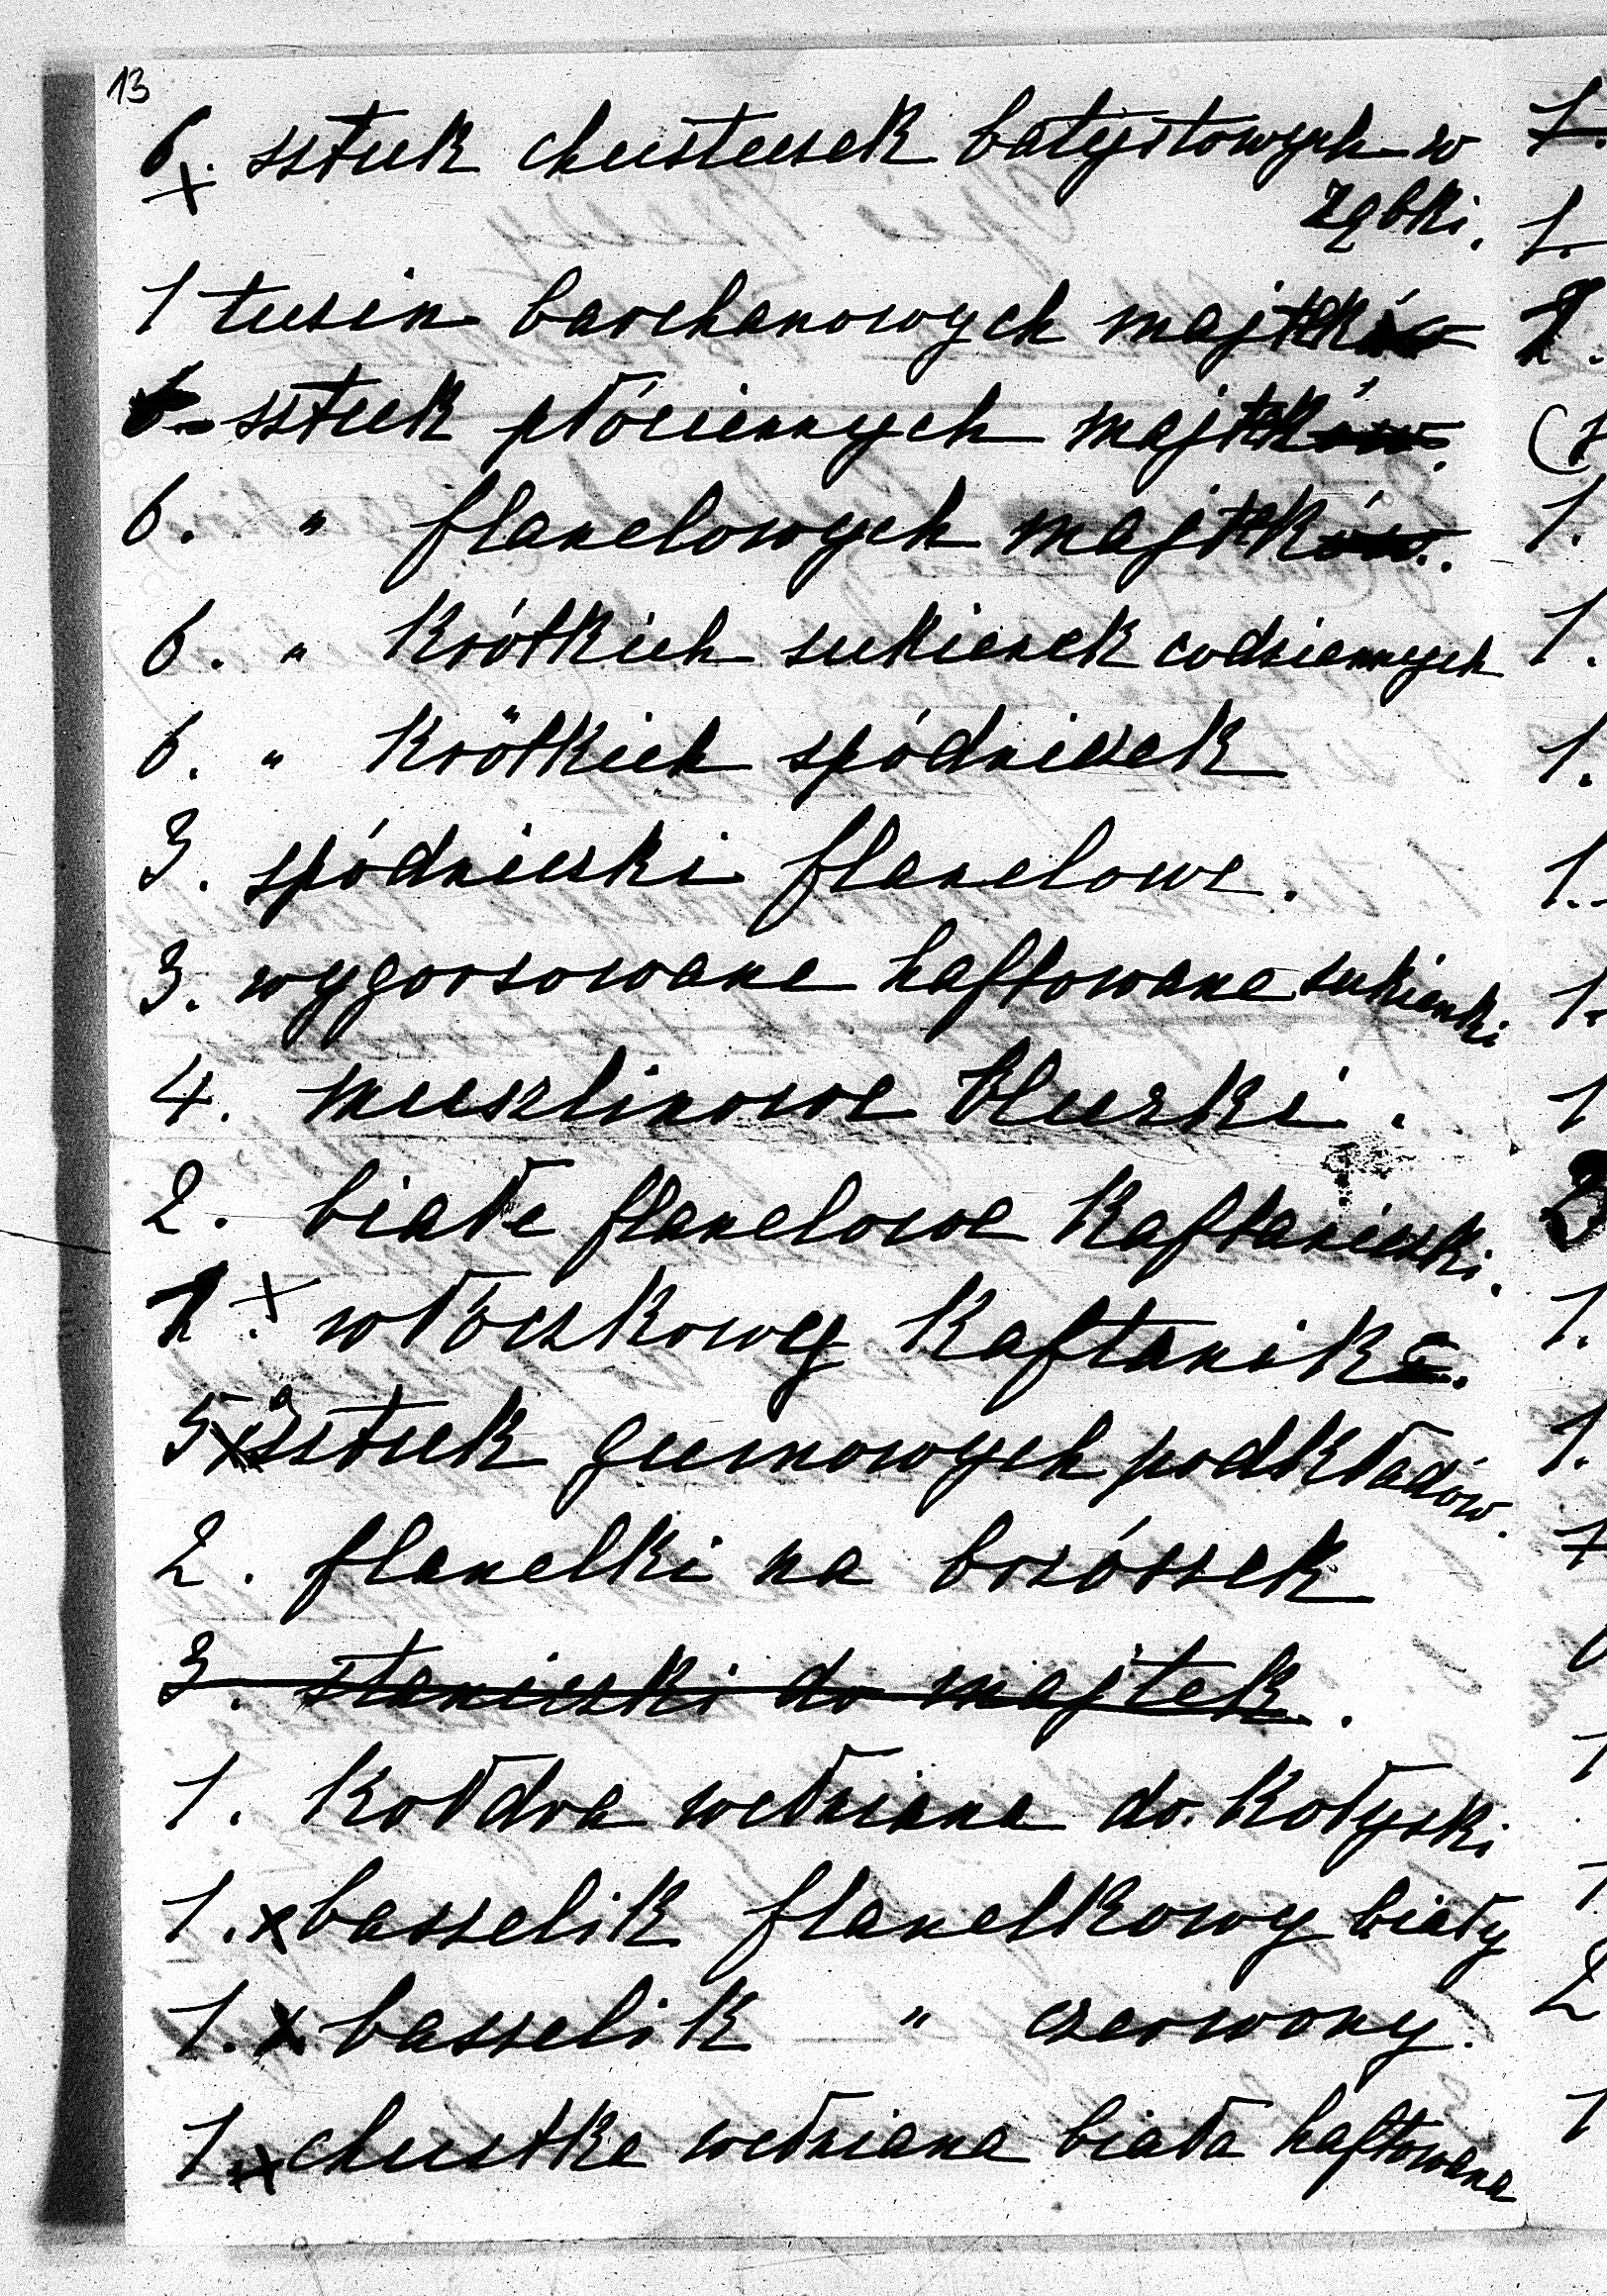 13
6. sztuk chusteczek batystowych w
ząbki.
1 tuzin barchanowych majtek
6. sztuk płóciennych majtek
6. " flanelowych majtek
6. " krótkich sukienek codziennych
6. " krótkich spódniczek
3. spódniczki flanelowe.
3. wygorsowane haftowane sukienki
4. muszlinowe bluzki.
2. białe flanelowe kaftaniczki.
1. x włóczkowy kaftanik.
5 x sztuk gumowych podkładów.
2. flanelki na brzószek
3. staniczki do majtek.
1. kołdra wełniana do kołyski
1. x baszelik flanelkowy biały
1. x baszelik " czerwony.
1. x chustka wełniana biała haftowana